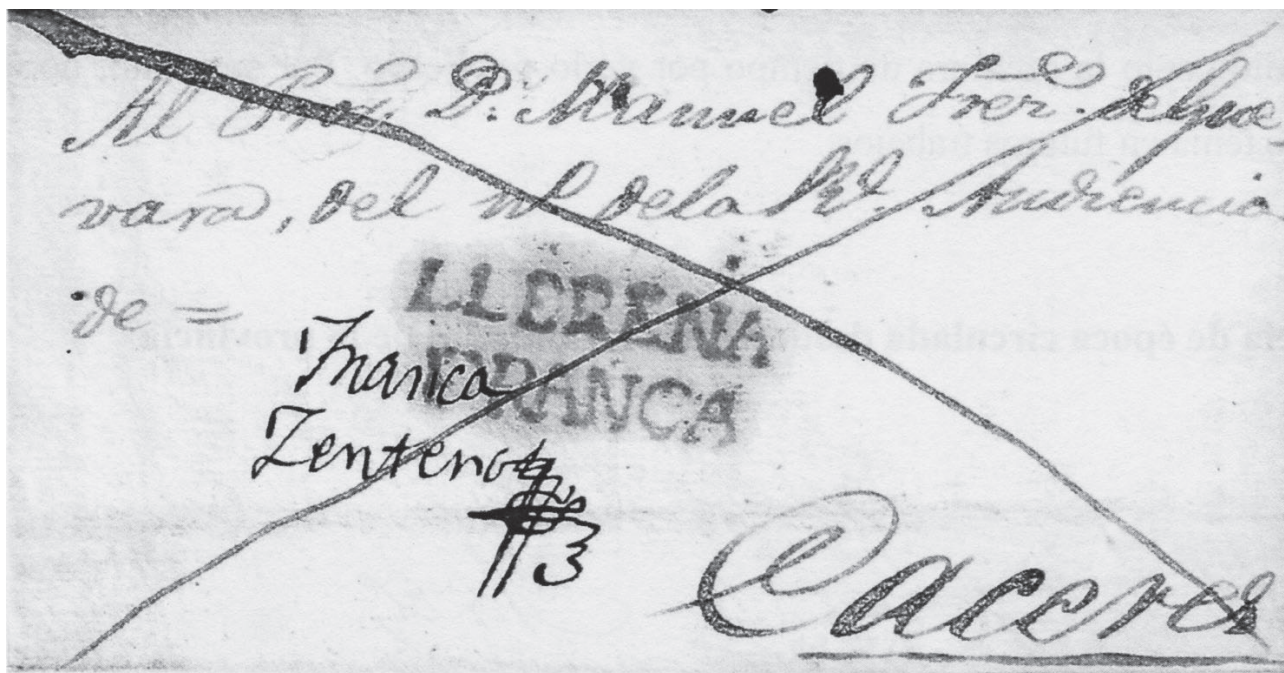 Al D. Manuel Frez. de Gue
vara, del de la Rl. Audiencia
de =
LLERENA
FRANCA
Franca
Zenteno
Caceres